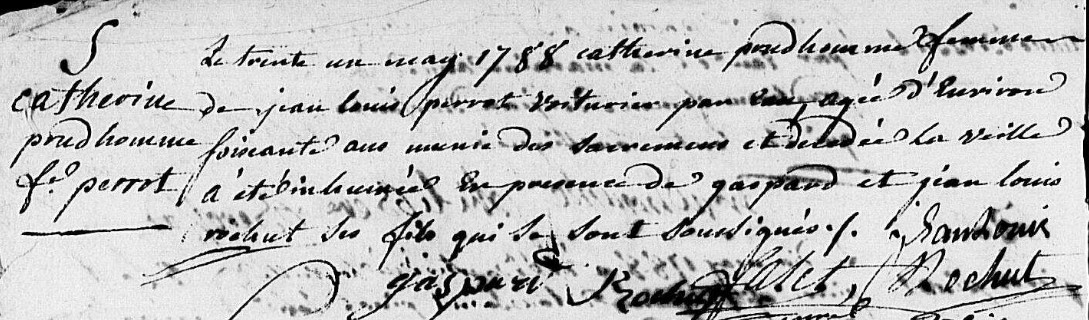 S
catherine
prudhomme
fe perrot
Le trente un may 1788 catherine prudhomme femme
de jean louis perrot voiturier par eau, agée d'Environ
soisante ans munie des sacremens et decedée la veille
a été inhumée En presence de gaspard et jean louis
rochut ses fils qui se sont soussignés ./. jean Louis
gaspard Rochut Rochut